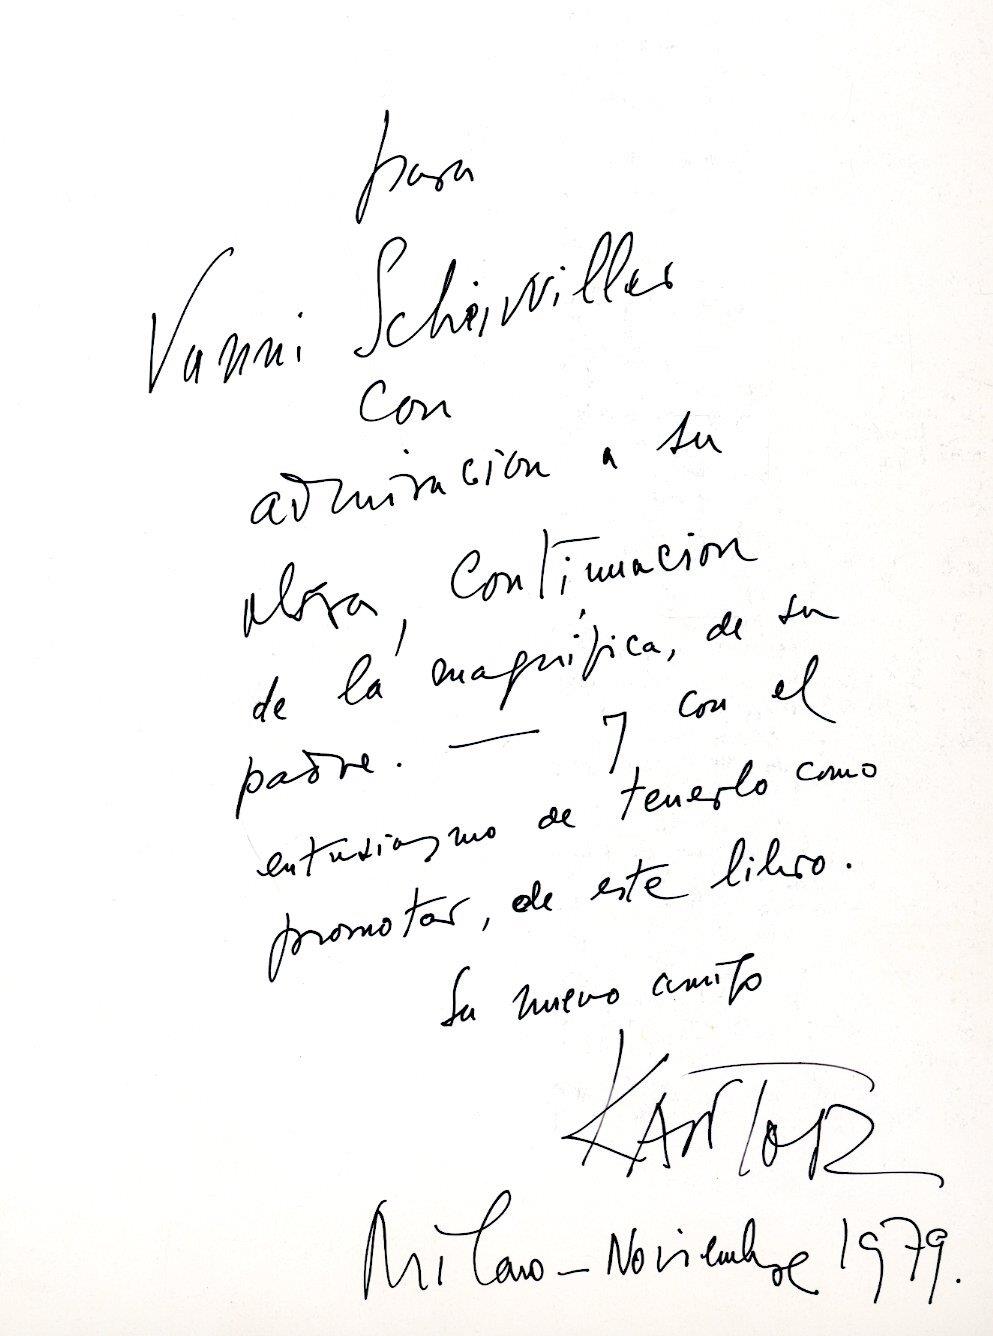 para
Vanni Scheiwiller
con
admiracion a su
obra, continuacion
de la magnífica, de su
padre. — y con el
entusiasmo de tenerlo como
promotor, de este libro.
Su nuevo amigo
KANTOR
Milano – Noviembre 1979.